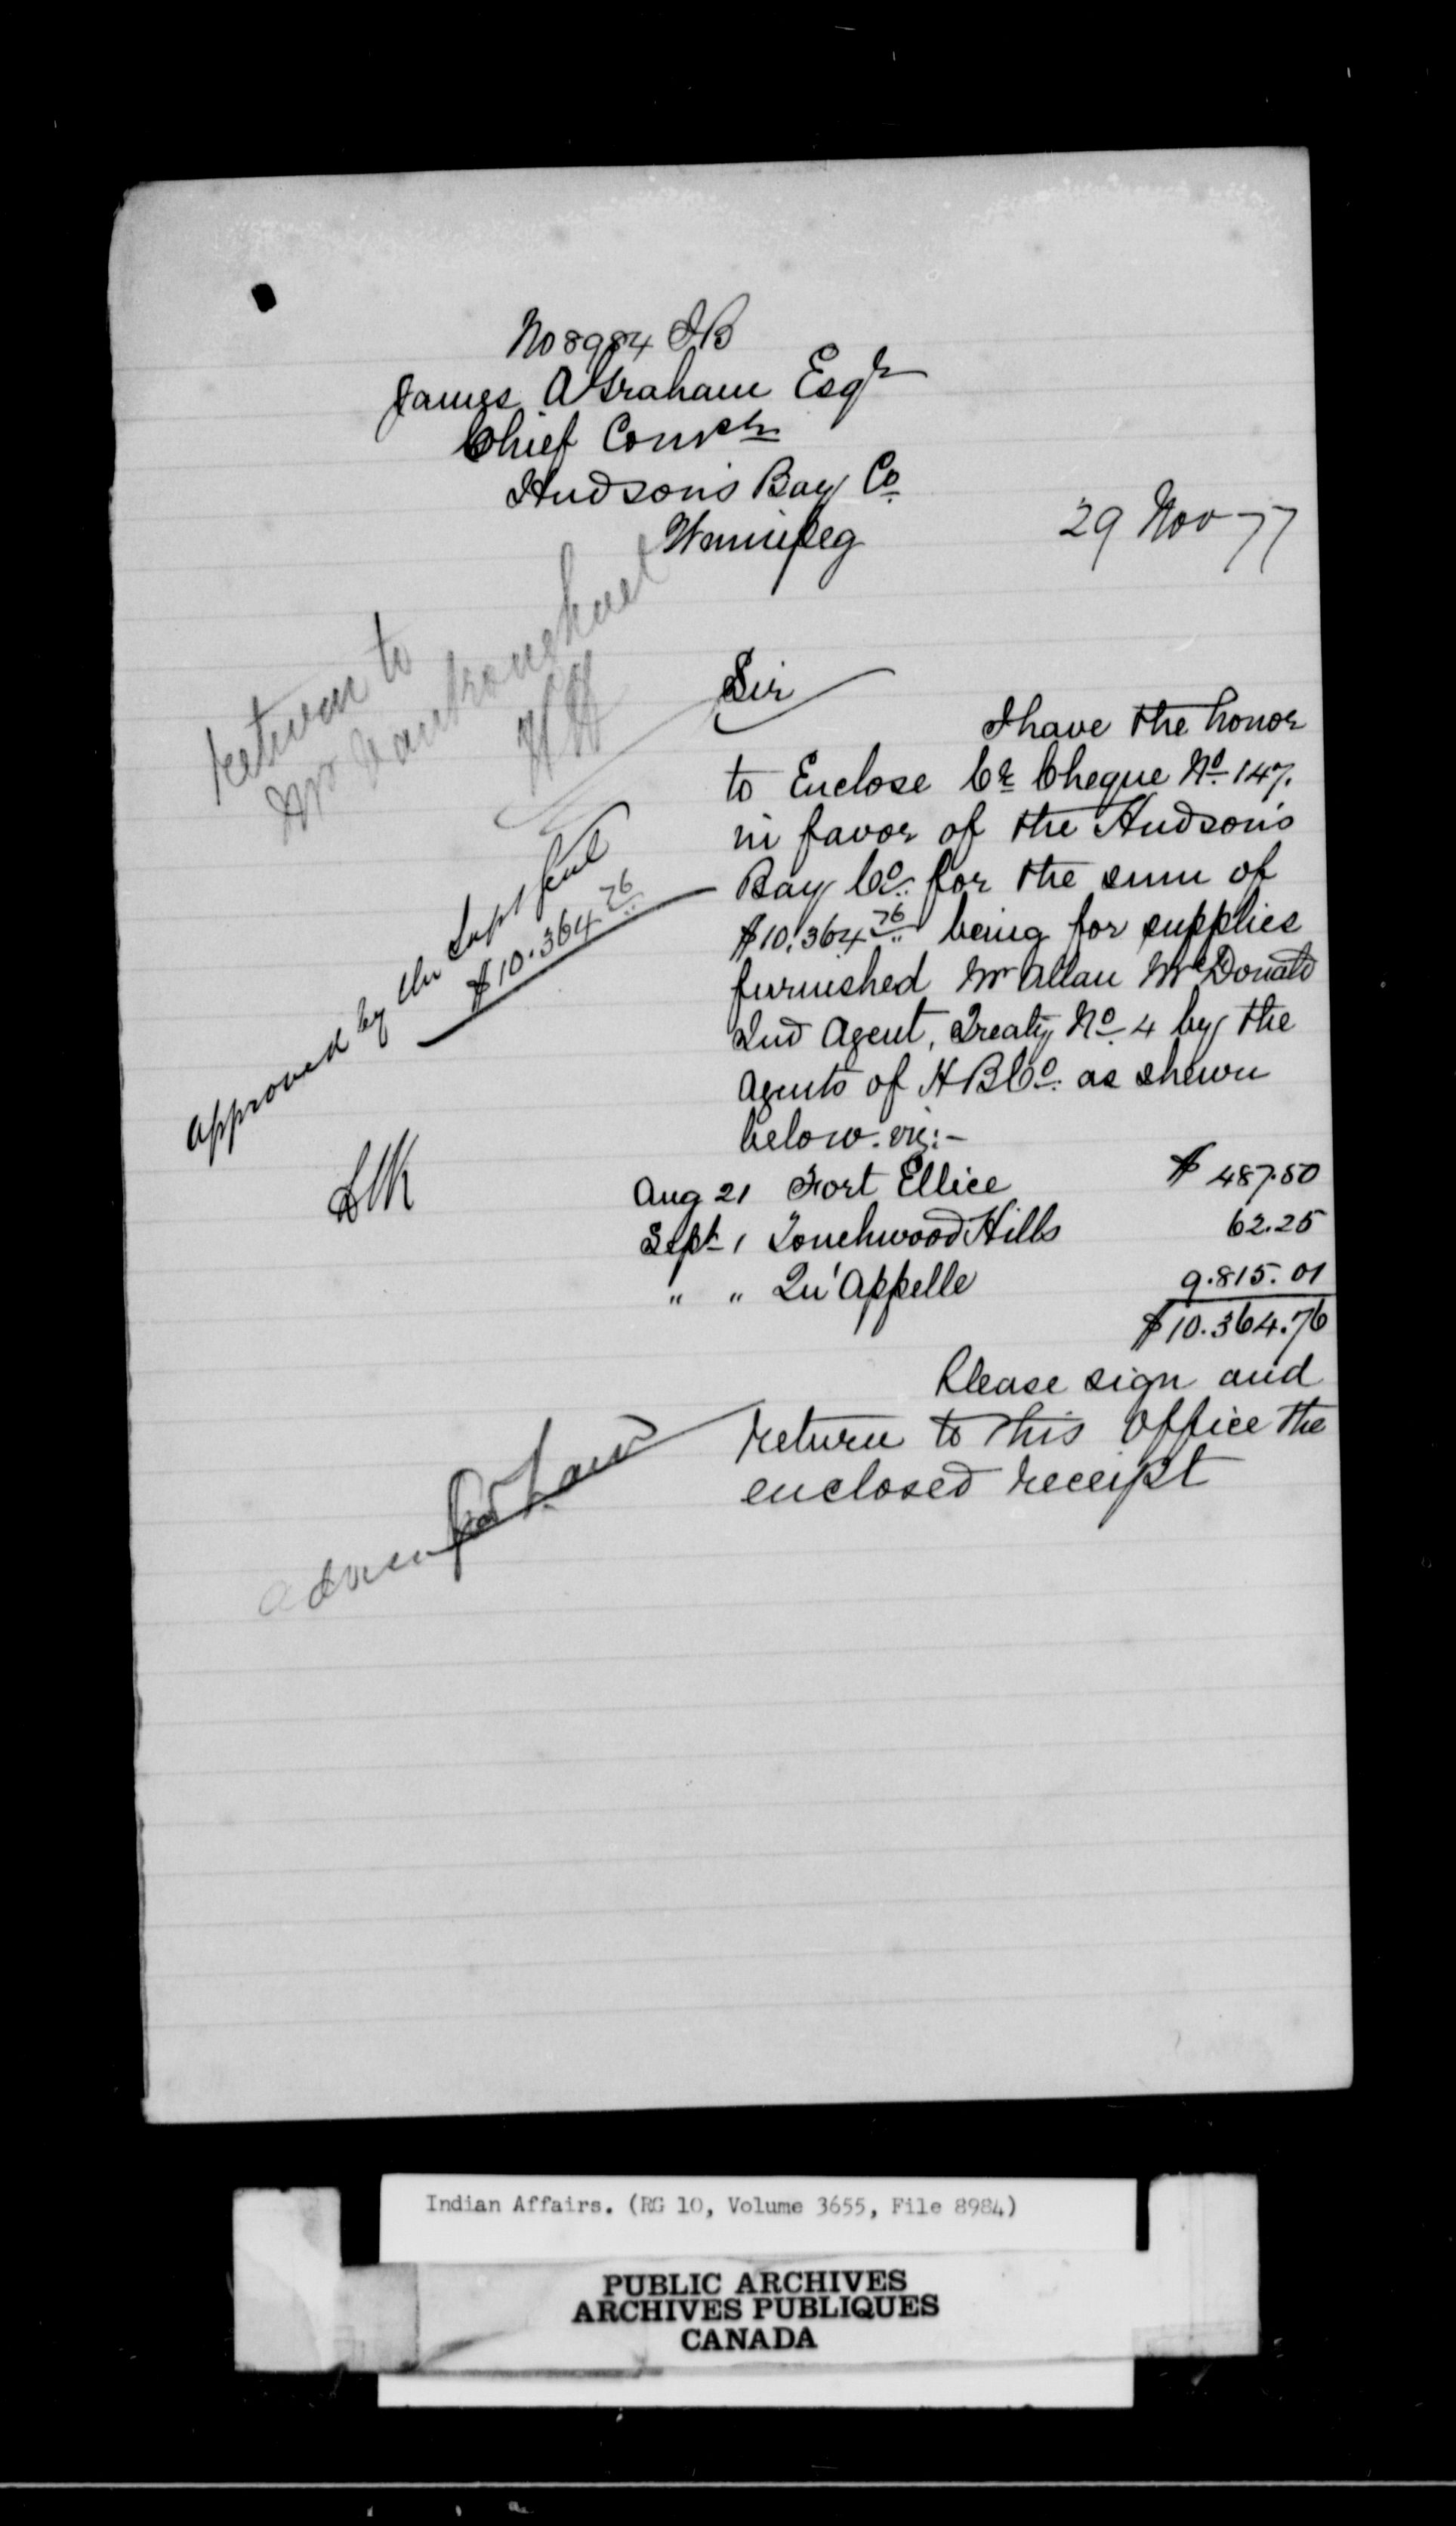 No 8984 IB
James A Graham Esqr
Chief Comr
Hudson's Bay Co
Winnipeg
29 Nov 77
Return to
Mr Vankoughnet
Sir
I have the honor
to Enclose Cr Cheque No 147.
in favor of the Hudson's
Bay Co. for the sum of
$10.364 76 being for supplies
furnished Mr Allan McDonald
Ind Agent, Treaty No 4 by the
Agents of HBCo. as shewn
below. viz:-
approved by the Supt Genl
$10.364 76
Aug 21 Fort Ellice $ 487.50
Sept 1 Touchwood Hills 62.25
" " Qu'Appelle 9.815.01
$10.364.76
Please sign and
return to this Office the
enclosed receipt
Indian Affairs. (RG 10, Volume 3655, File 8984)
PUBLIC ARCHIVES
ARCHIVES PUBLIQUES
CANADA